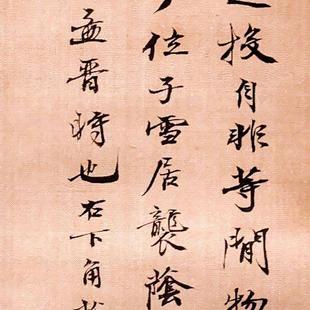 投自非等閒物
位子雪居襲蔭
孟晋時也右下角